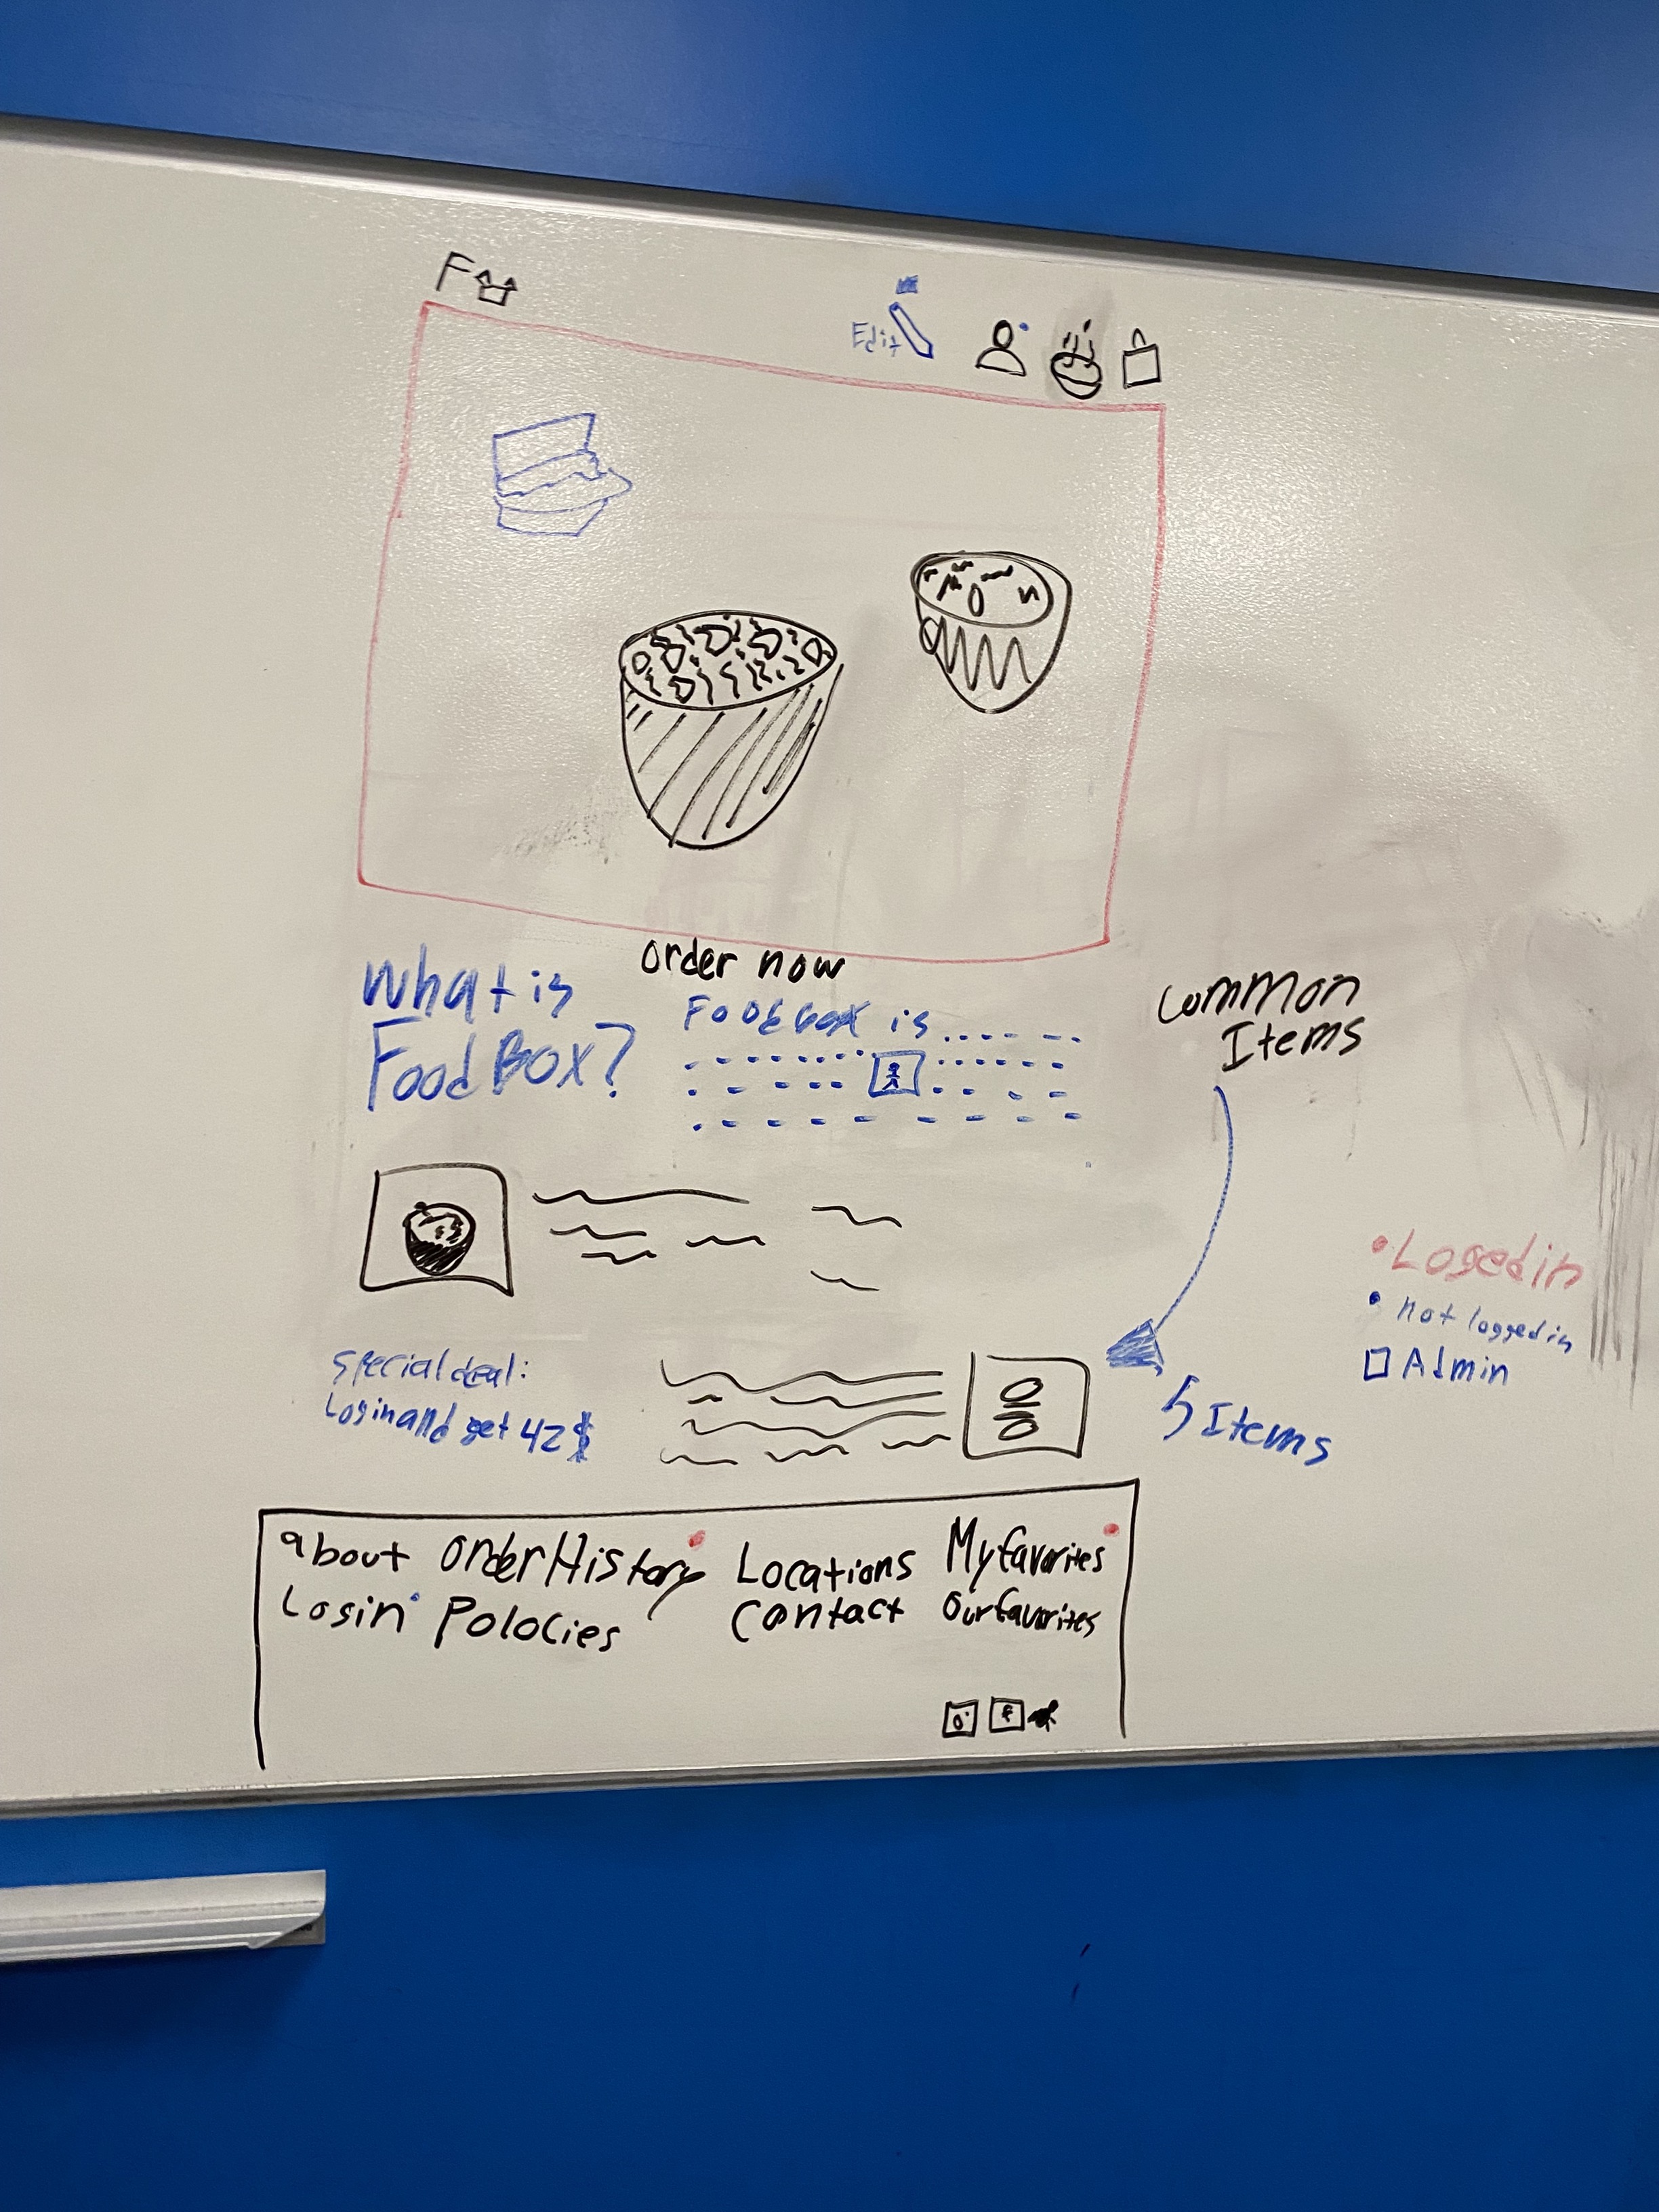 F
Edit
order now
What is
Food BOX?
Food box is
Common
Items
5 Items
Special deal:
Login and get 42$
• Logedin
• not logged in
Admin
about Order History Locations My favorites
Login Polocies Contact Our favorites
f